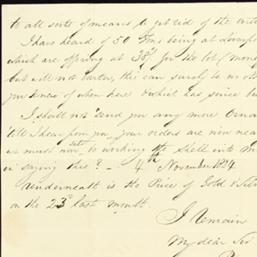 to all sorts of means to get rid of the
I have heard of 50 Tms being at
which are offering at 38/ for the lot
but will not barter, this can surely be no
you knew of when here &
I shall not send you any more
till I hear from you. Your orders are now
as must now, to working the Shell into
in saying this? - 4th November
Underneath is the Price of Gold &
on the 23d last month.
I Remain
My dear Sir